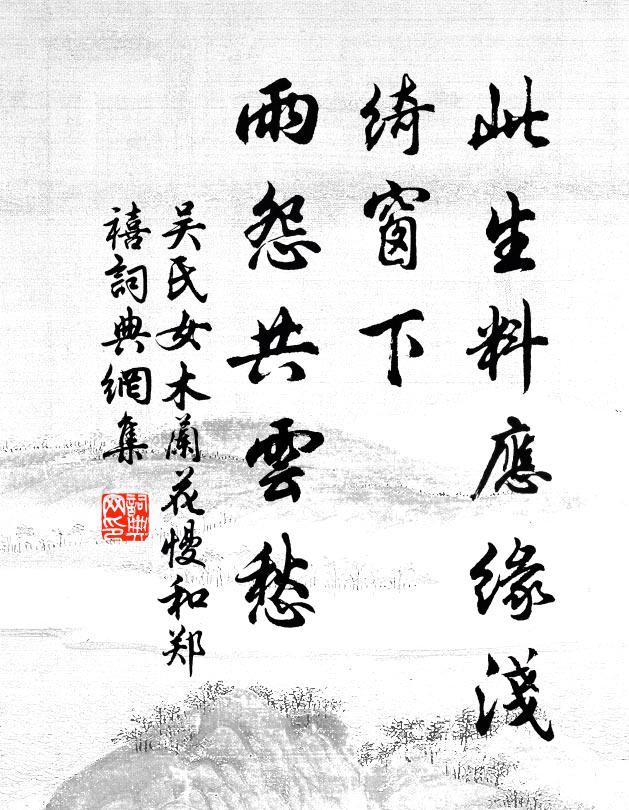 此生料應緣淺
綺窗下
雨怨共雲愁
吴氏女木蘭花慢和郑
禧詞典網集